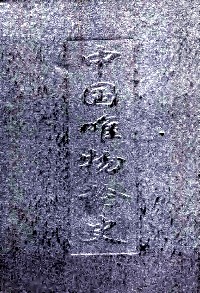 中国唯物论史